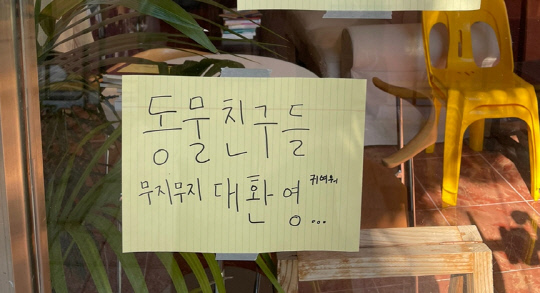 동물친구들
무지무지 대환영... 귀여워